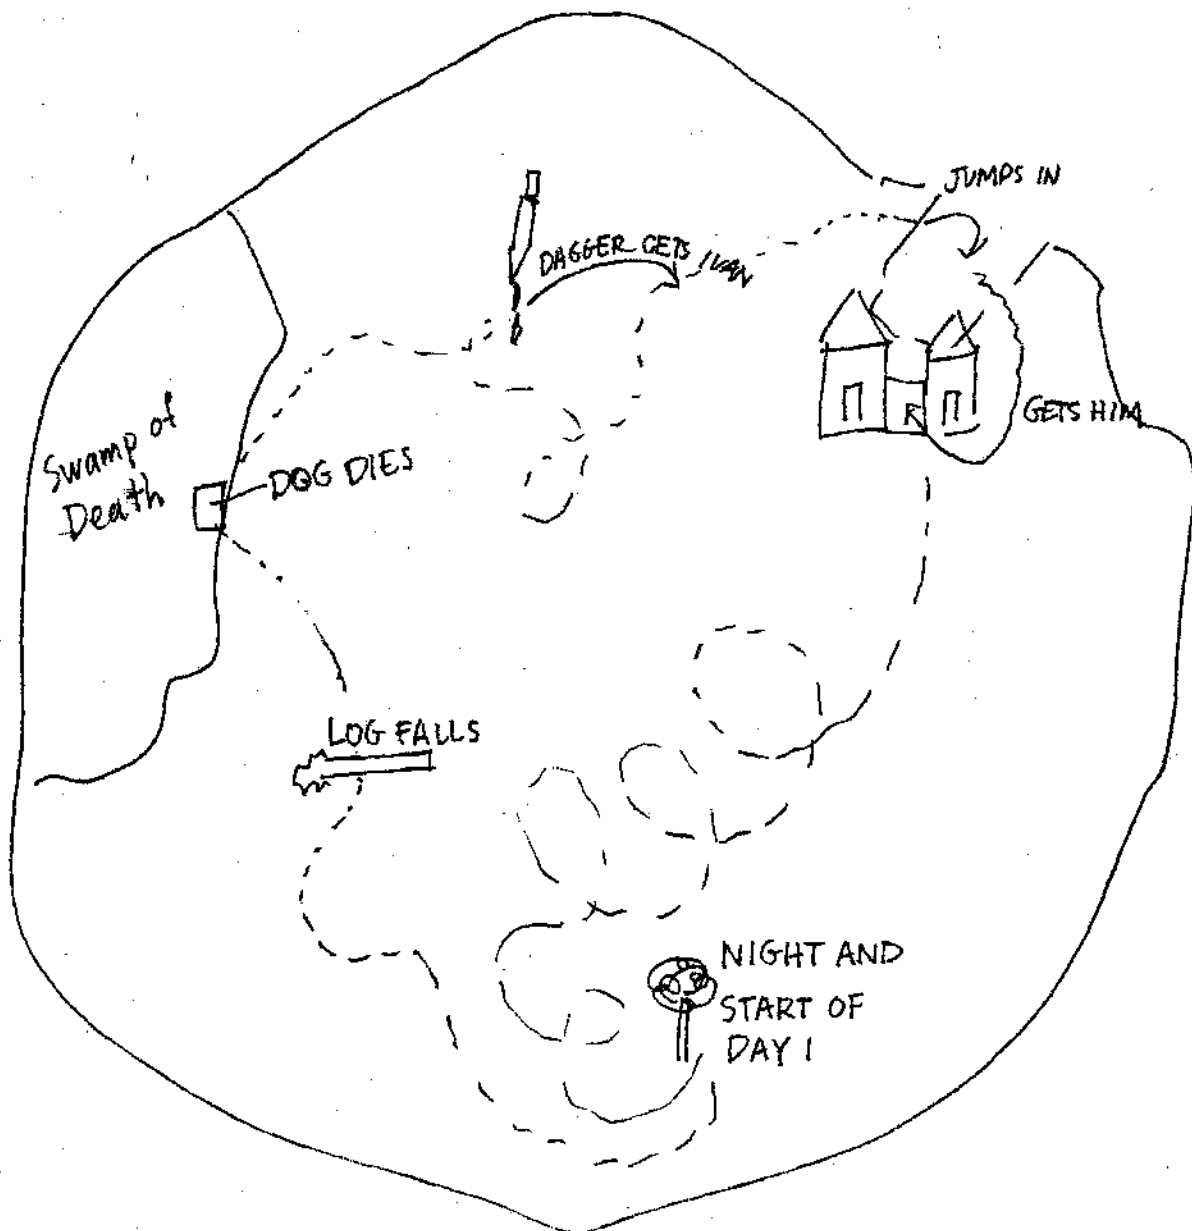 JUMPS IN
DAGGER GETS IVAN
GETS HIM
Swamp of
Death
DOG DIES
LOG FALLS
NIGHT AND
START OF
DAY 1